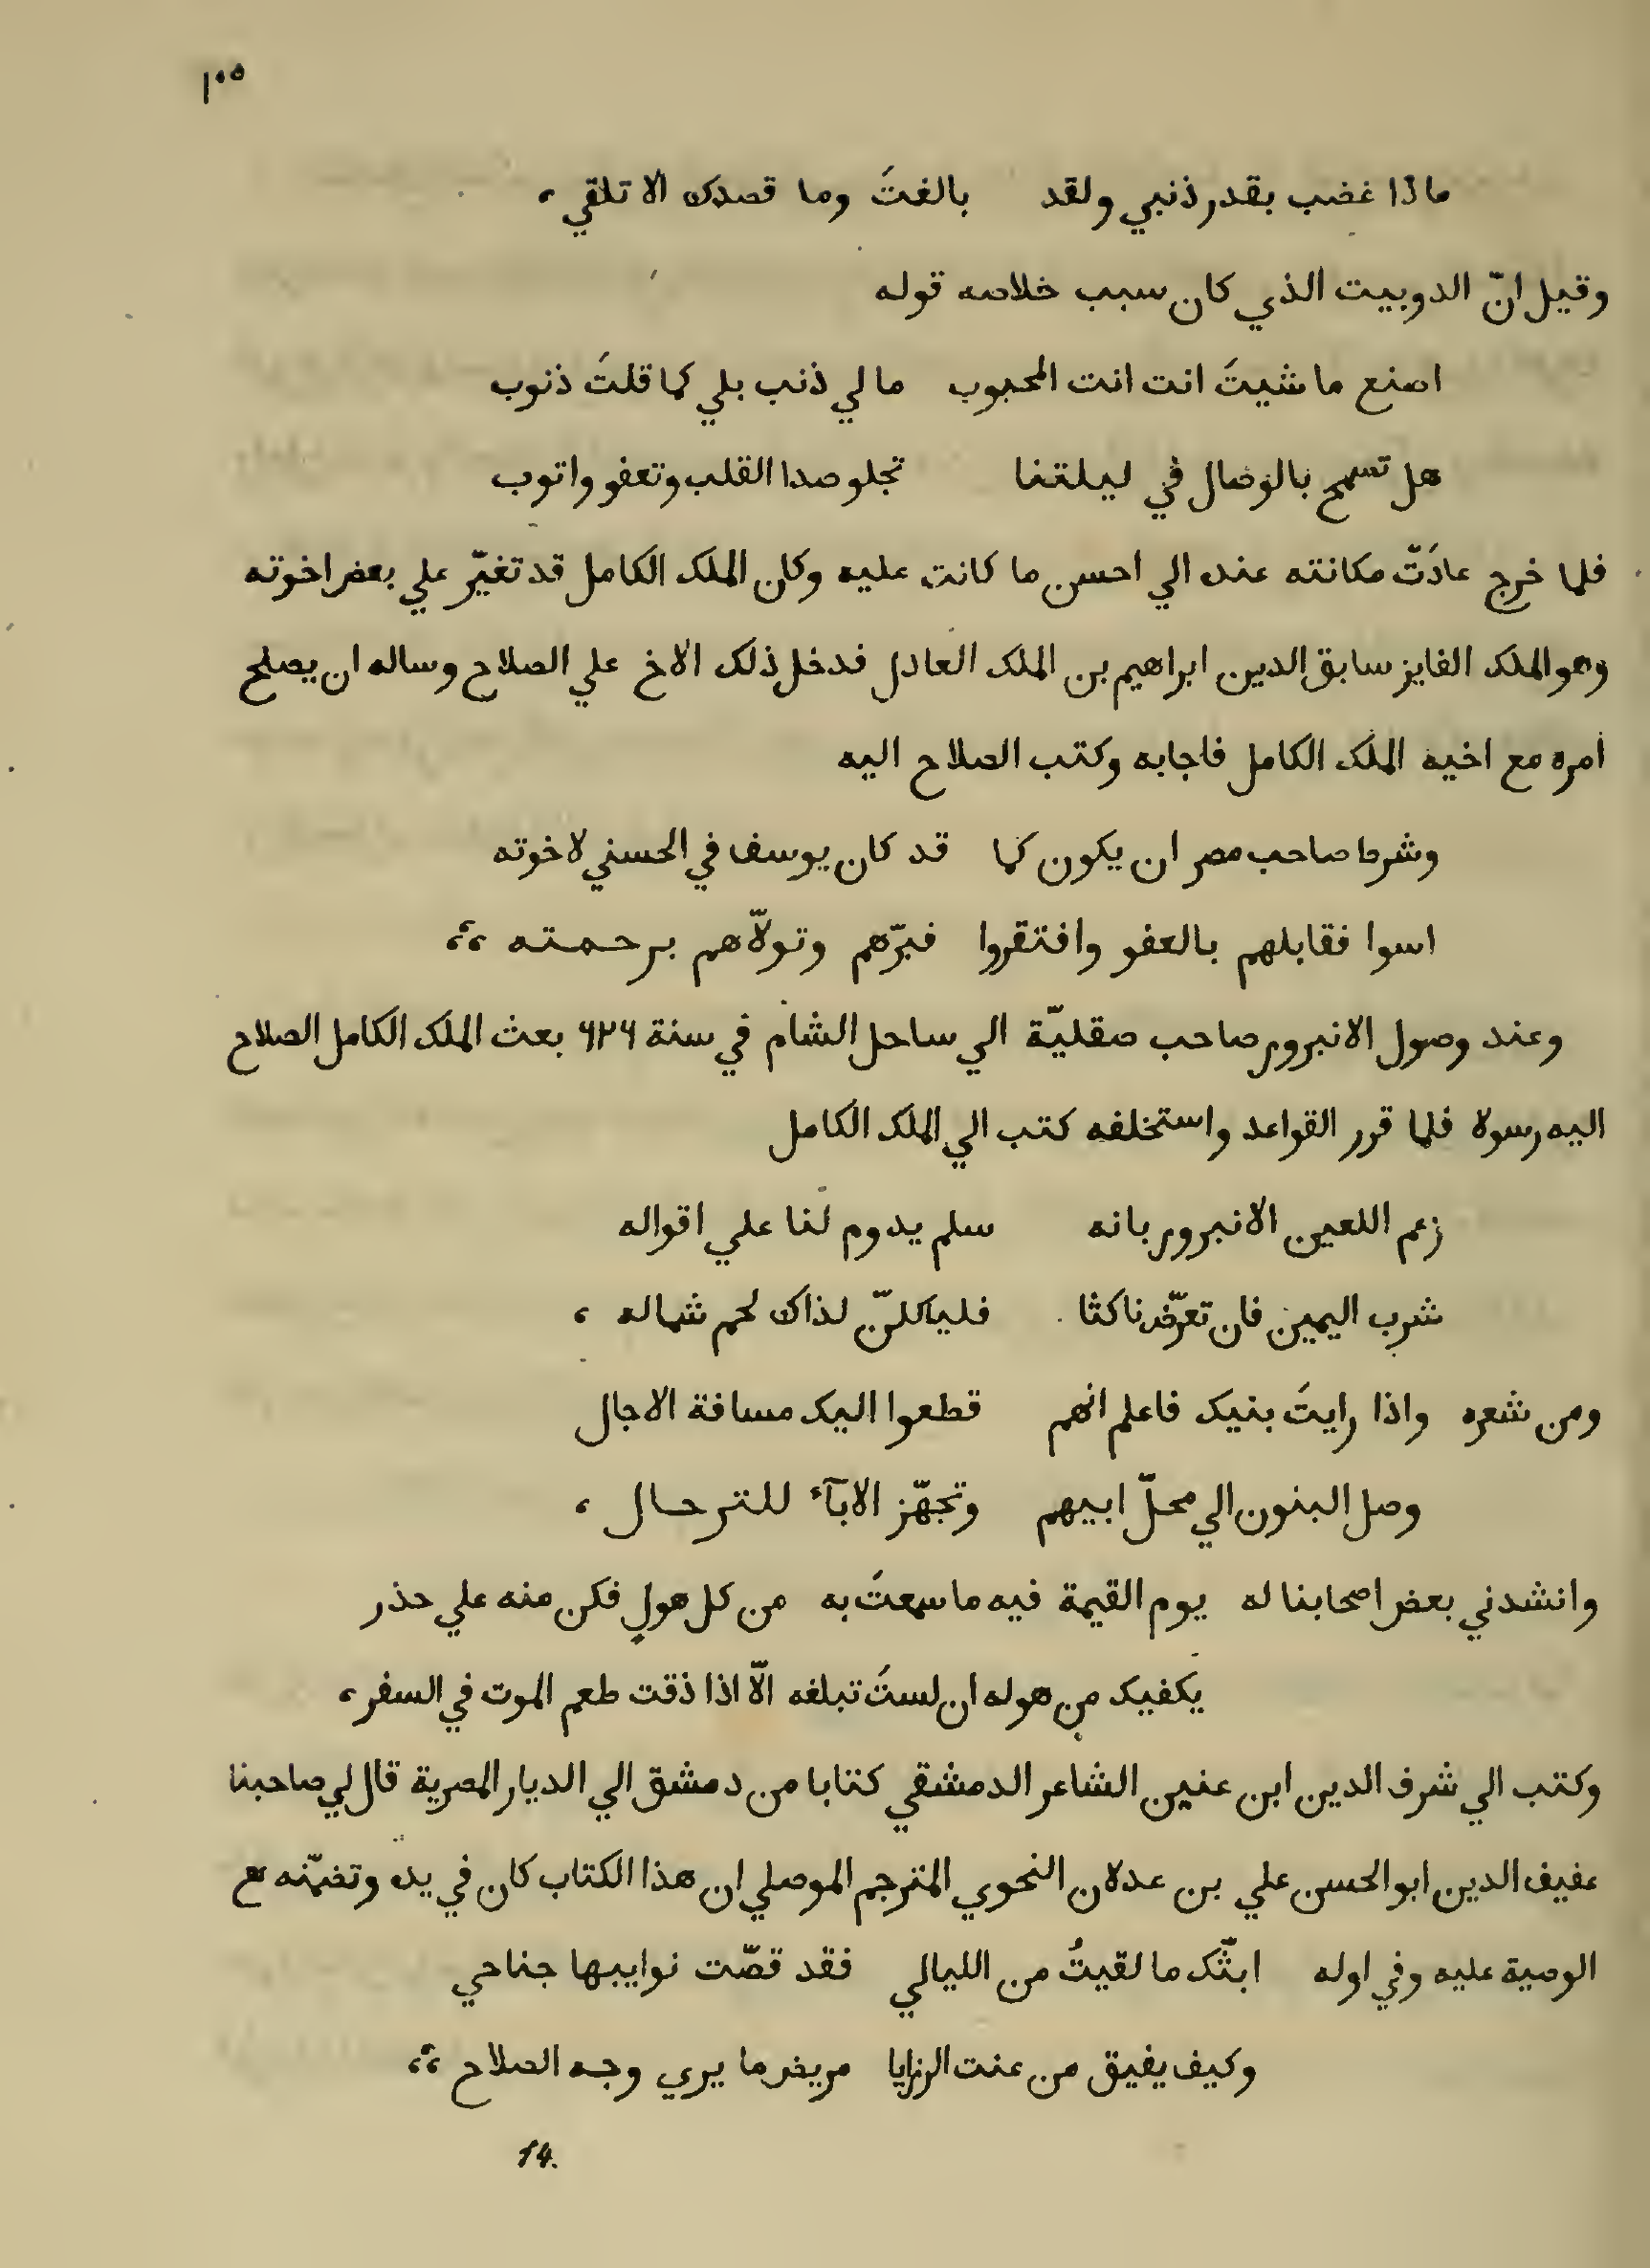 ١٠٥
ماذا غضب بقدر ذنبي ولقد بالغتَ وما قصدك الا تلقي،
وقيل انّ الدوبيت الذي كان سبب خلاصه قوله
اصنع ما شيتَ انت انت المحبوب ما لي ذنب بلي كما قلتَ ذنوب
هل تسمح بالوصال في ليلتنا تجلو صدا القلب وتعفو واتوب
فلما خرج عادَتّ مكانته عنده الي احسن ما كانت عليه وكان الملك الكامل قد تغيّر علي بعض اخوته
وهو الملك الفايز سابق الدين ابراهيم بن الملك العادل فدخل ذلك الاخ علي الصلاح وساله ان يصلح
امره مع اخيه الملك الكامل فاجابه وكتب الصلاح اليه
وشرط صاحب مصر ان يكون كما قد كان يوسف في الحسني لاخوته
اسوا فقابلهم بالعفو وافتقروا فبرّهم وتولّاهم برحمته ،،
وعند وصول الانبرور صاحب صقليّة الي ساحل الشام في سنة ٦٢٦ بعث الملك الكامل الصلاح
اليه رسولا فلما قرر القواعد واستخلفه كتب الي الملك الكامل
زعم اللعين الانبرور بانه سلم يدوم لنا علي اقواله
شرب اليمين فان تعرّض ناكثا فلياكلنّ لذاك لحم شماله ،
ومن شعره واذا رايتَ بنيك فاعلم انهم قطعوا اليك مسافة الاجال
وصل البنون الي محلّ ابيهم وتجهّز الابآء للترحال ،
وانشدني بعض اصحابنا له يوم القيمة فيه ما سمعتَ به من كل هولٍ فكن منه علي حذر
يكفيك من هوله ان لستَ تبلغه الّا اذا ذقت طعم الموت في السفر،
وكتب الي شرف الدين ابن عنين الشاعر الدمشقي كتابا من دمشق الي الديار المصرية قال لي صاحبنا
عفيف الدين ابو الحسن علي بن عدلان النحوي المترجم الموصلي ان هذا الكتاب كان في يده وتضمّنه مع
الوصية عليه وفي اوله ابثّك ما لقيتُ من الليالي فقد قصّت نوايبها جناحي
وكيف يفيق من عنت الرزايا مريض ما يري وجه الصلاح ،،
14.